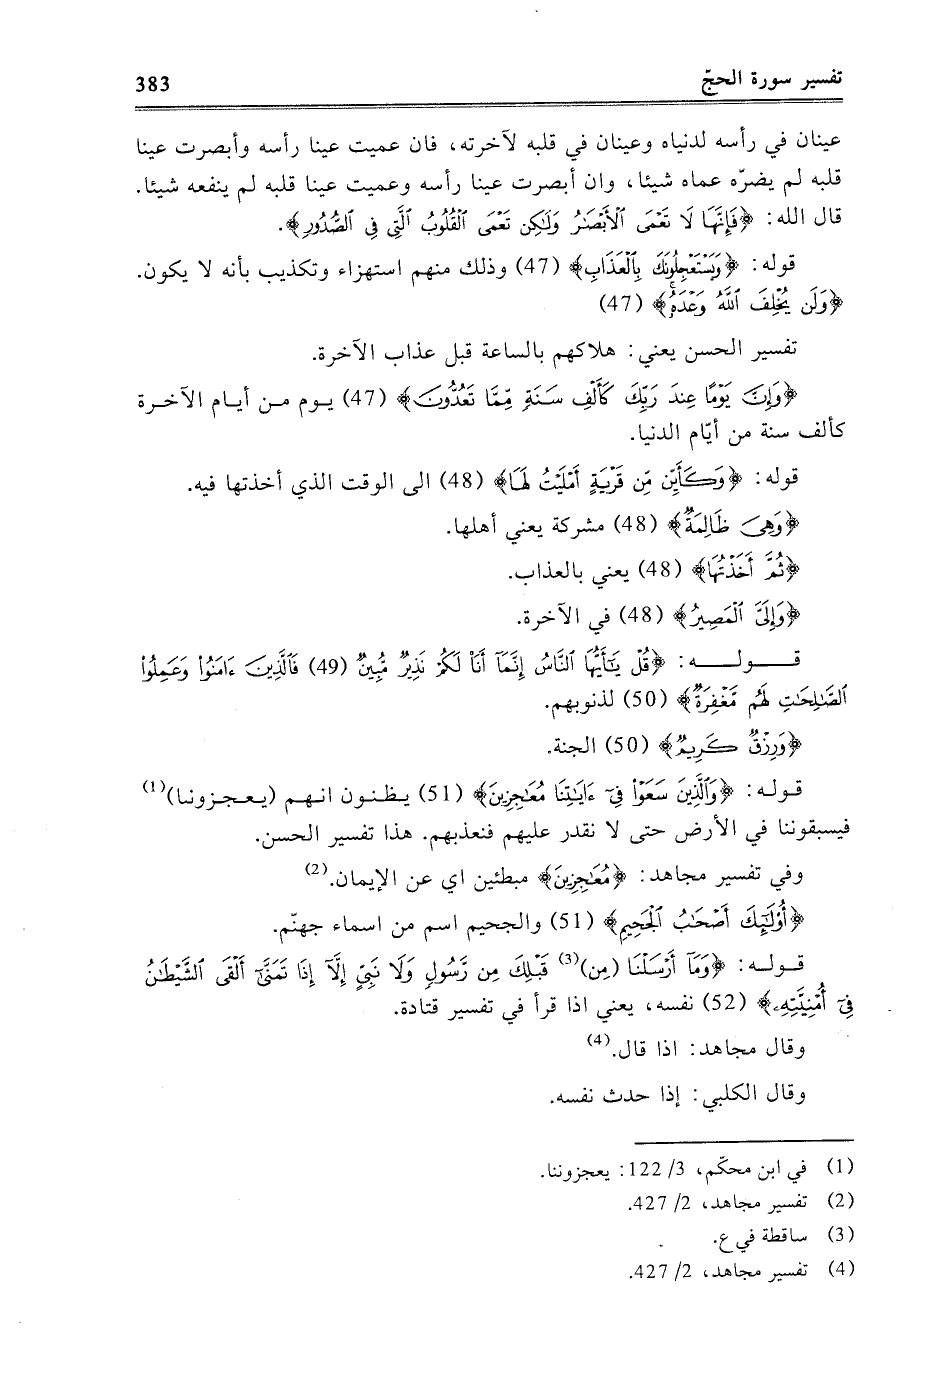 تفسير سورة الحجّ
383
عينان في رأسه لدنياه وعينان في قلبه لآخرته، فان عميت عينا رأسه وأبصرت عينا
قلبه لم يضرّه عماه شيئا، وان أبصرت عينا رأسه وعميت عينا قلبه لم ينفعه شيئا.
قال الله: ﴿فَإِنَّهَا لَا تَعْمَى ٱلْأَبْصَٰرُ وَلَٰكِن تَعْمَى ٱلْقُلُوبُ ٱلَّتِي فِي ٱلصُّدُورِ﴾.
قوله: ﴿وَيَسْتَعْجِلُونَكَ بِٱلْعَذَابِ﴾ (47) وذلك منهم استهزاء وتكذيب بأنه لا يكون.
﴿وَلَن يُخْلِفَ ٱللَّهُ وَعْدَهُۥ﴾ (47)
تفسير الحسن يعني: هلاكهم بالساعة قبل عذاب الآخرة.
﴿وَإِنَّ يَوْمًا عِندَ رَبِّكَ كَأَلْفِ سَنَةٍ مِّمَّا تَعُدُّونَ﴾ (47) يوم من أيام الآخرة
كألف سنة من أيّام الدنيا.
قوله: ﴿وَكَأَيِّن مِّن قَرْيَةٍ أَمْلَيْتُ لَهَا﴾ (48) الى الوقت الذي أخذتها فيه.
﴿وَهِيَ ظَالِمَةٌ﴾ (48) مشركة يعني أهلها.
﴿ثُمَّ أَخَذْتُهَا﴾ (48) يعني بالعذاب.
﴿وَإِلَيَّ ٱلْمَصِيرُ﴾ (48) في الآخرة.
قوله: ﴿قُلْ يَٰٓأَيُّهَا ٱلنَّاسُ إِنَّمَآ أَنَا۠ لَكُمْ نَذِيرٌ مُّبِينٌ (49) فَٱلَّذِينَ ءَامَنُوا۟ وَعَمِلُوا۟
ٱلصَّٰلِحَٰتِ لَهُم مَّغْفِرَةٌ﴾ (50) لذنوبهم.
﴿وَرِزْقٌ كَرِيمٌ﴾ (50) الجنة.
قوله: ﴿وَٱلَّذِينَ سَعَوْا۟ فِيٓ ءَايَٰتِنَا مُعَٰجِزِينَ﴾ (51) يظنون انهم (يعجزونا)(1)
فيسبقوننا في الأرض حتى لا نقدر عليهم فنعذبهم. هذا تفسير الحسن.
وفي تفسير مجاهد: ﴿مُعَٰجِزِينَ﴾ مبطئين اي عن الإيمان.(2)
﴿أُو۟لَٰٓئِكَ أَصْحَٰبُ ٱلْجَحِيمِ﴾ (51) والجحيم اسم من اسماء جهنّم.
قوله: ﴿وَمَآ أَرْسَلْنَا (مِن)(3) قَبْلِكَ مِن رَّسُولٍ وَلَا نَبِيٍّ إِلَّآ إِذَا تَمَنَّىٰٓ أَلْقَى ٱلشَّيْطَٰنُ
فِيٓ أُمْنِيَّتِهِۦ﴾ (52) نفسه، يعني اذا قرأ في تفسير قتادة.
وقال مجاهد: اذا قال.(4)
وقال الكلبي: إذا حدث نفسه.
(1) في ابن محكّم، 3/ 122: يعجزوننا.
(2) تفسير مجاهد، 2/ 427.
(3) ساقطة في ع.
(4) تفسير مجاهد، 2/ 427.